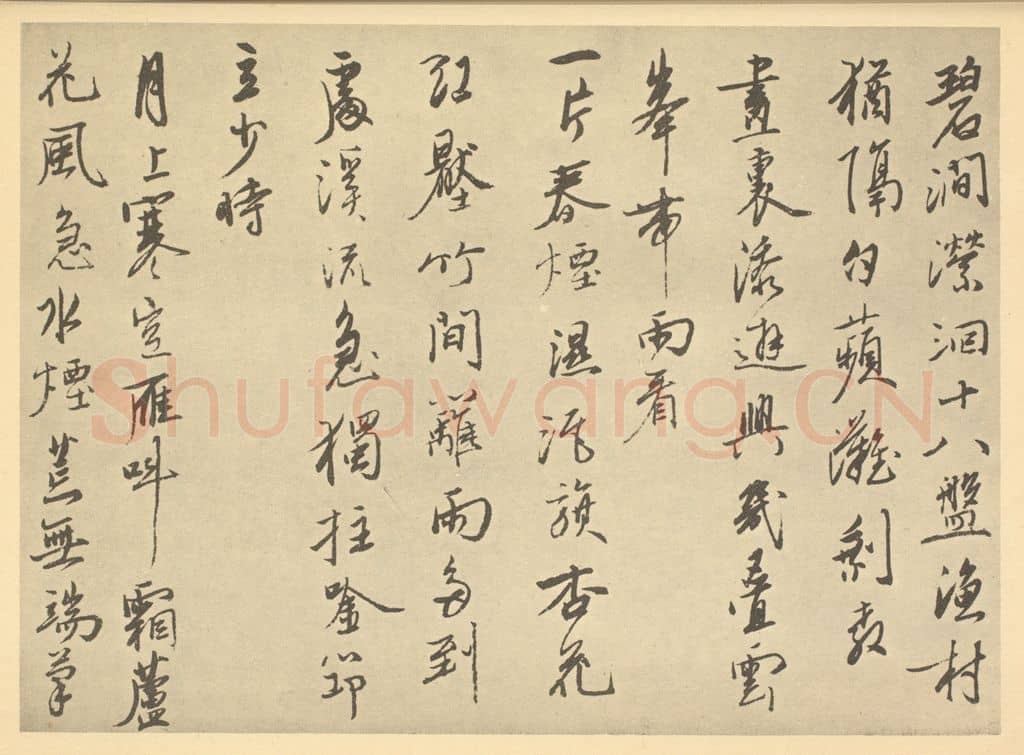 碧澗瀠洄十八盤漁村
猶隔白蘋灘剩教
畫裏添遊興幾疊雲
峯帶雨看
一片春煙濕酒旗杏花
紅壓竹間籬雨多到
處溪流急獨拄吟筇
立少時
月上寒空雁叫霜蘆
花風急水煙荒無端筆
Shufawang.CN